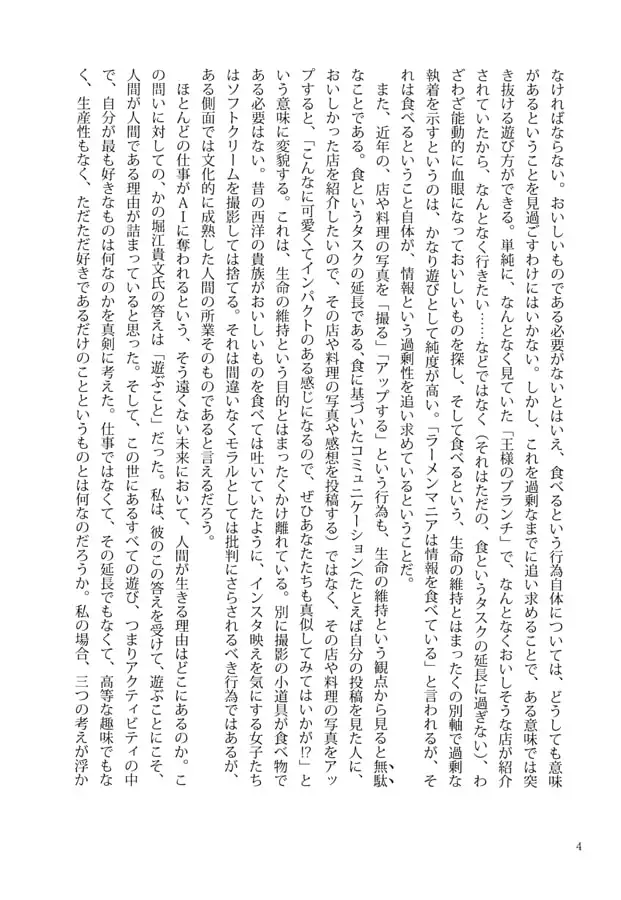 なければならない。おいしいものである必要がないとはいえ、食べるという行為自体については、どうしても意味
があるということを見過ごすわけにはいかない。しかし、これを過剰なまでに追い求めることで、ある意味では突
き抜ける遊び方ができる。単純に、なんとなく見ていた「王様のブランチ」で、なんとなくおいしそうな店が紹介
されていたから、なんとなく行きたい……などではなく（それはただの、食というタスクの延長に過ぎない）、わ
ざわざ能動的に血眼になっておいしいものを探し、そして食べるという、生命の維持とはまったくの別軸で過剰な
執着を示すというのは、かなり遊びとして純度が高い。「ラーメンマニアは情報を食べている」と言われるが、そ
れは食べるということ自体が、情報という過剰性を追い求めているということだ。
また、近年の、店や料理の写真を「撮る」「アップする」という行為も、生命の維持という観点から見ると無駄
なことである。食というタスクの延長である、食に基づいたコミュニケーション（たとえば自分の投稿を見た人に、
おいしかった店を紹介したいので、その店や料理の写真や感想を投稿する）ではなく、その店や料理の写真をアッ
プすると、「こんなに可愛くてインパクトのある感じになるので、ぜひあなたたちも真似してみてはいかが⁉」と
いう意味に変貌する。これは、生命の維持という目的とはまったくかけ離れている。別に撮影の小道具が食べ物で
ある必要はない。昔の西洋の貴族がおいしいものを食べては吐いていたように、インスタ映えを気にする女子たち
はソフトクリームを撮影しては捨てる。それは間違いなくモラルとしては批判にさらされるべき行為ではあるが、
ある側面では文化的に成熟した人間の所業そのものであると言えるだろう。
ほとんどの仕事がＡＩに奪われるという、そう遠くない未来において、人間が生きる理由はどこにあるのか。こ
の問いに対しての、かの堀江貴文氏の答えは「遊ぶこと」だった。私は、彼のこの答えを受けて、遊ぶことにこそ、
人間が人間である理由が詰まっていると思った。そして、この世にあるすべての遊び、つまりアクティビティの中
で、自分が最も好きなものは何なのかを真剣に考えた。仕事ではなくて、その延長でもなくて、高等な趣味でもな
く、生産性もなく、ただただ好きであるだけのことというものとは何なのだろうか。私の場合、三つの考えが浮か
4